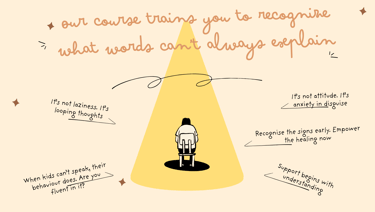 our course trains you to recognize
what words can't always explain
It's not laziness. It's
looping thoughts
It's not attitude. It's
anxiety in disguise
Recognise the signs early. Empower
the healing now
When kids can't speak, their
behaviour does. Are you
fluent in it?
Support begins with
understanding